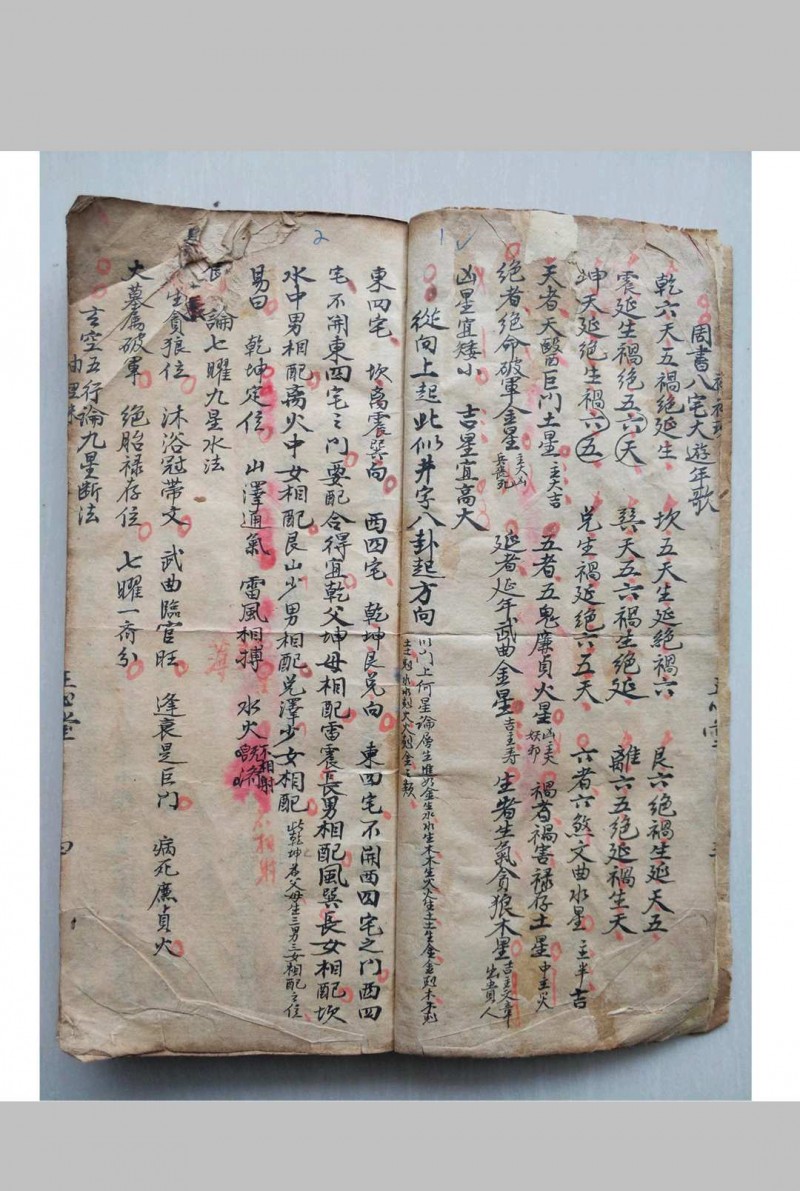 1
周書八宅大遊年歌
乾六天五禍絶延生 坎五天生延絶禍六 艮六絶禍生延天五
震延生禍绝五六天 巽天五六禍生绝延 離六五绝延禍生天
坤天延绝生禍六五 兑生禍延绝六五天
天者天醫巨门土星 主大吉 五者五鬼廉貞火星 凶主火 妖邪 六者六煞文曲水星 主半吉
绝者绝命破軍金星 主大凶 延者延年武曲金星 吉主寿 禍者禍害禄存土星 中主災
生者生氣貪狼木星 吉主文章 出貴人
凶星宜矮小 吉星宜高大
從向上起此似井字八卦起方向
2
東四宅 坎离震巽向 西四宅 乾坤艮兑向 東四宅不開西四宅之门西四
宅不開東四宅之门要配合得宜乾父坤母相配雷震長男相配風巽長女相配坎
水中男相配离火中女相配艮山少男相配兑澤少女相配 此乾坤為父母生三男三女相配之位
易曰 乾坤定位 山澤通氣 雷風相搏 水火不相射
薄
不相射
論七曜九星水法
生貪狼位 沐浴冠带文 武曲臨官旺 逢衰是巨门 病死廉貞火
大墓属破軍 绝胎禄存位 七曜一齐分
玄空五行論九星断法
四